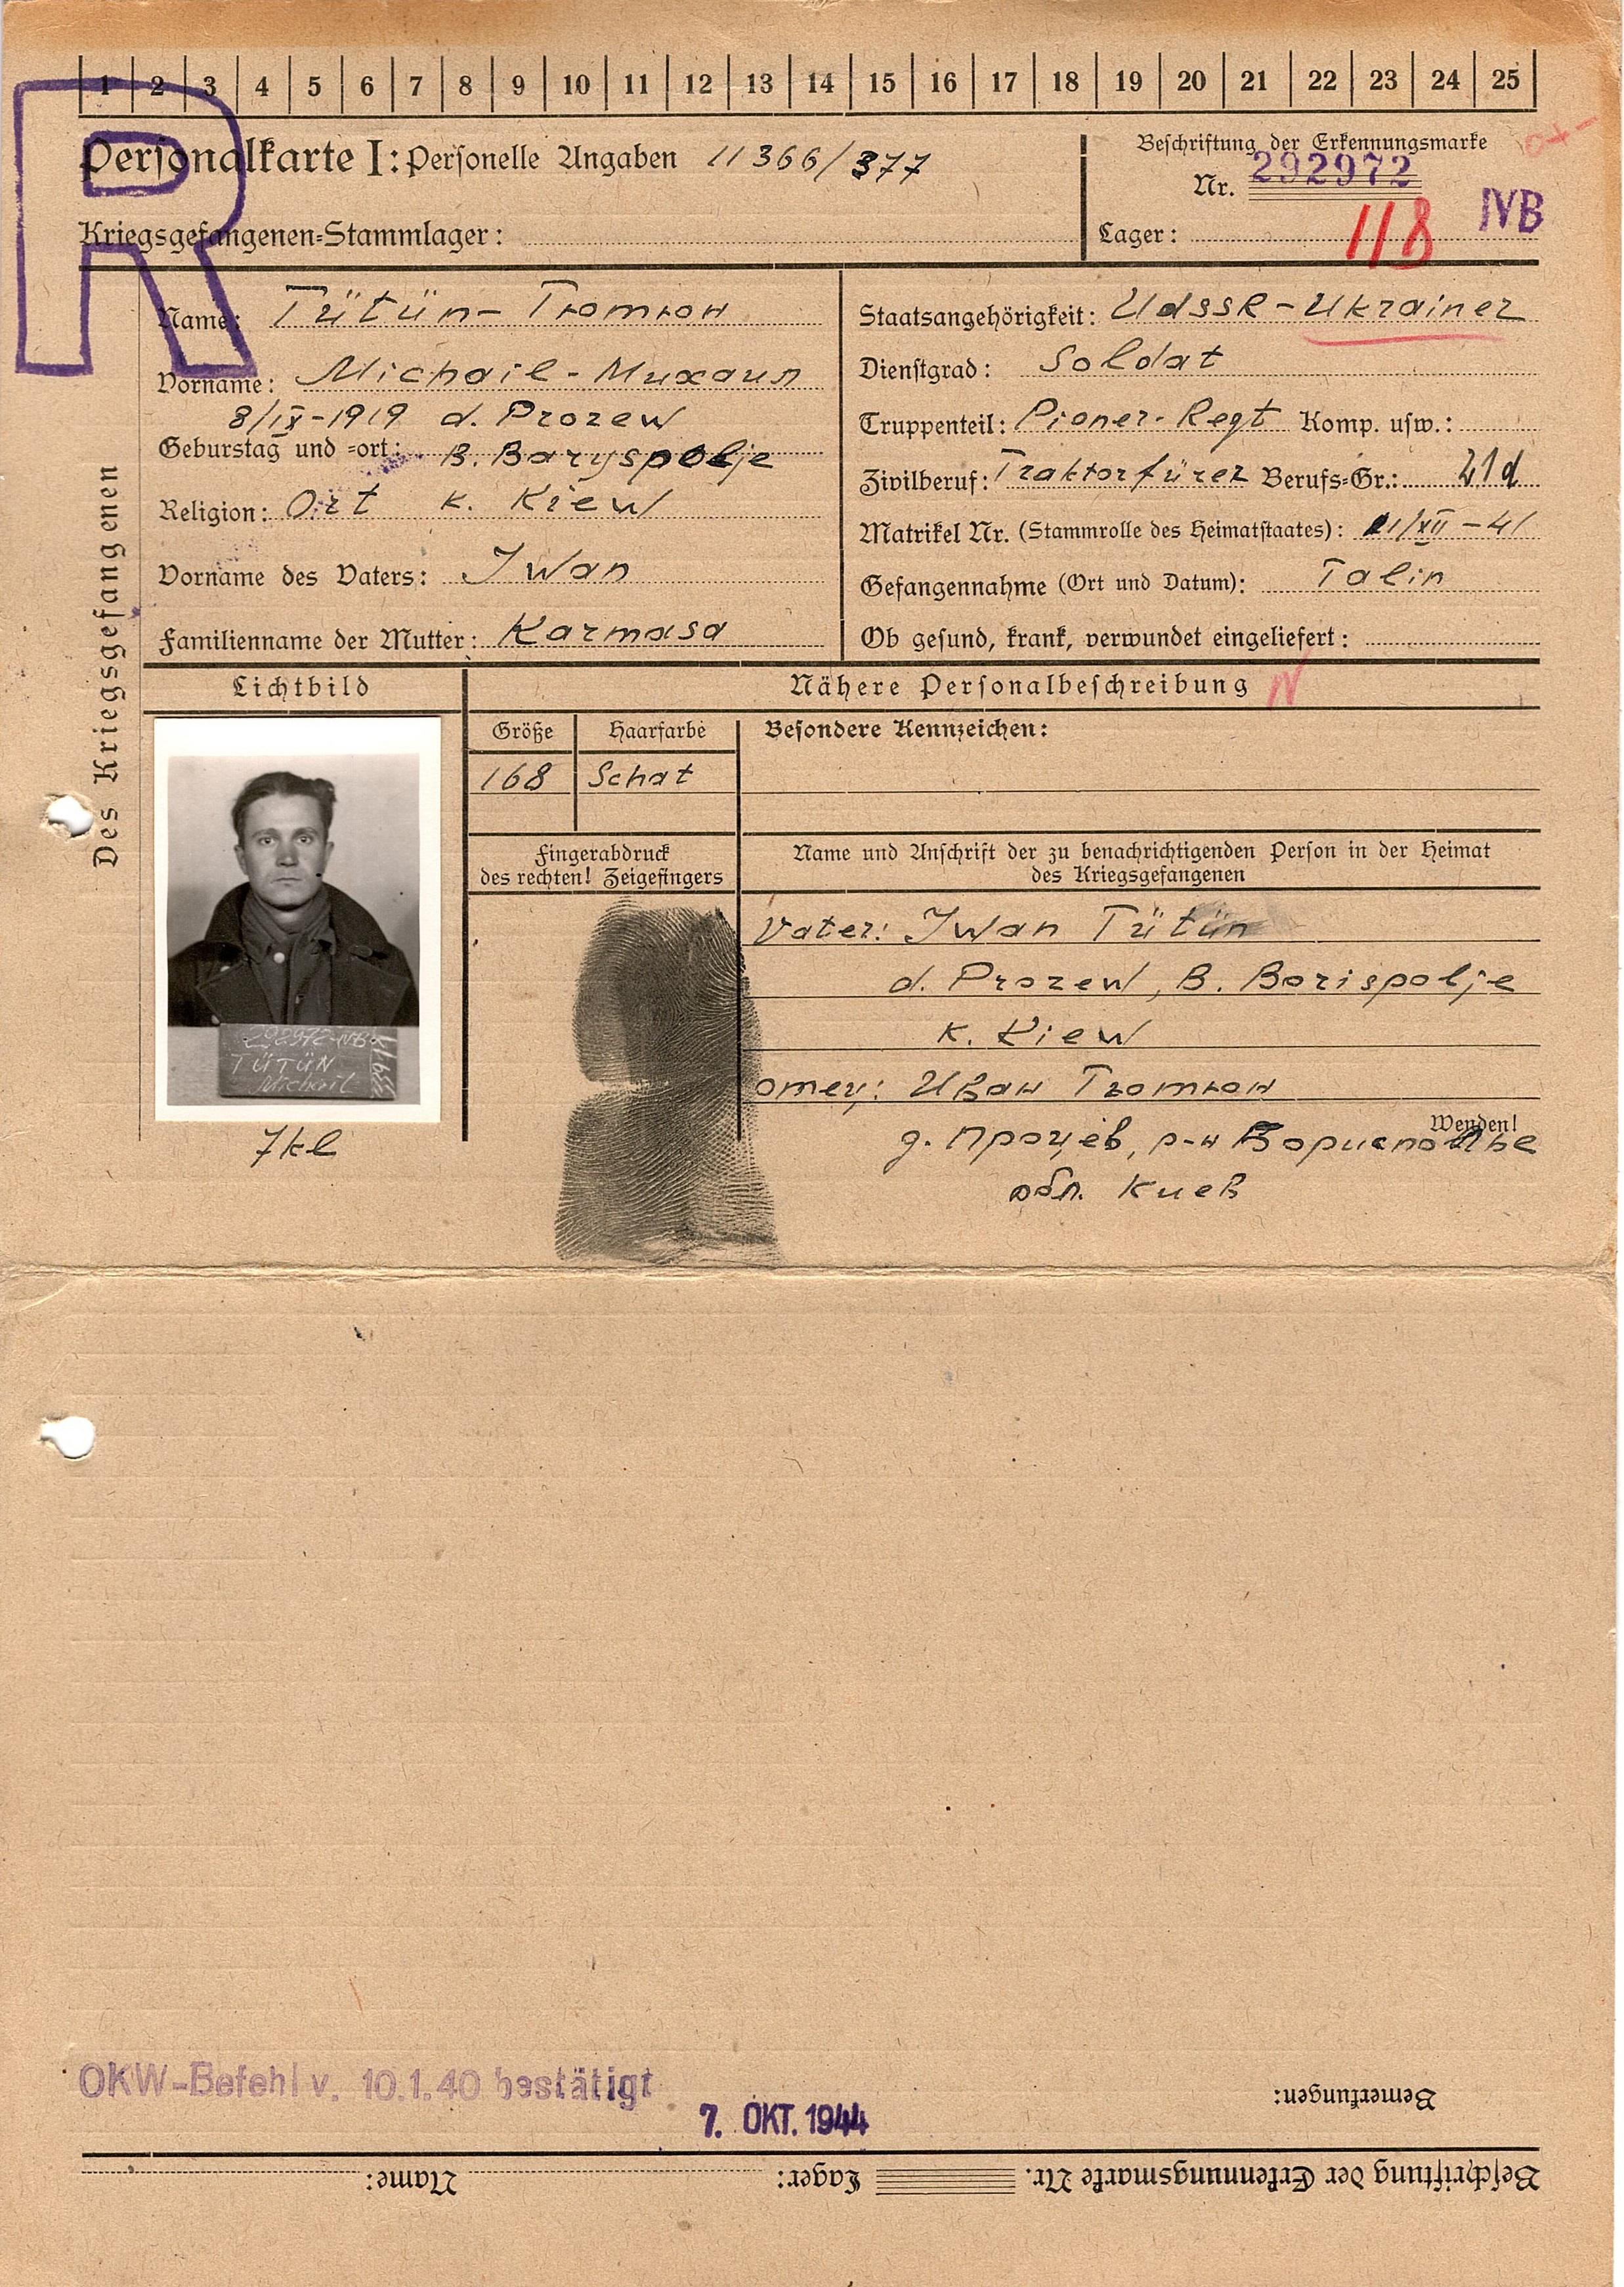 1 2 3 4 5 6 7 8 9 10 11 12 13 14 15 16 17 18 19 20 21 22 23 24 25
R
Personalkarte I: Personelle Angaben 11366/377
Beschriftung der Erkennungsmarke
Nr. 292972
Kriegsgefangenen-Stammlager:
Lager: 118 IVB
Des Kriegsgefangenen
Name: Tütün- Тютюн
Vorname: Michail - Михаил
8/IX-1919 d. Prozew
Geburstag und -ort: B. Baryspolje
Religion: Ort k. Kiew
Vorname des Vaters: Iwan
Familienname der Mutter: Karmasa
Staatsangehörigkeit: UdSSR - Ukrainer
Dienstgrad: Soldat
Truppenteil: Pioner-Regt Komp. usw.:
Zivilberuf: Traktorfürer Berufs-Gr.: 21d
Matrikel Nr. (Stammrolle des Heimatstaates): /XII - 41
Gefangennahme (Ort und Datum): Talin
Ob gesund, krank, verwundet eingeliefert:
Lichtbild
Nähere Personalbeschreibung
Größe Haarfarbe Besondere Kennzeichen:
168 Schat
292972-IVB
TÜTÜN
Michail
7kl
Fingerabdruck
des rechten! Zeigefingers
Name und Anschrift der zu benachrichtigenden Person in der Heimat
des Kriegsgefangenen
Vater: Iwan Tütün
d. Prozew, B. Borispolje
k. Kiew
отец: Иван Тютюн
Wenden!
д. Процев, р-н Борисполье
обл. Киев
OKW-Befehl v. 10.1.40 bestätigt
7. OKT. 1944
Bemerkungen:
Beschriftung der Erkennungsmarke Nr. Lager: Name: